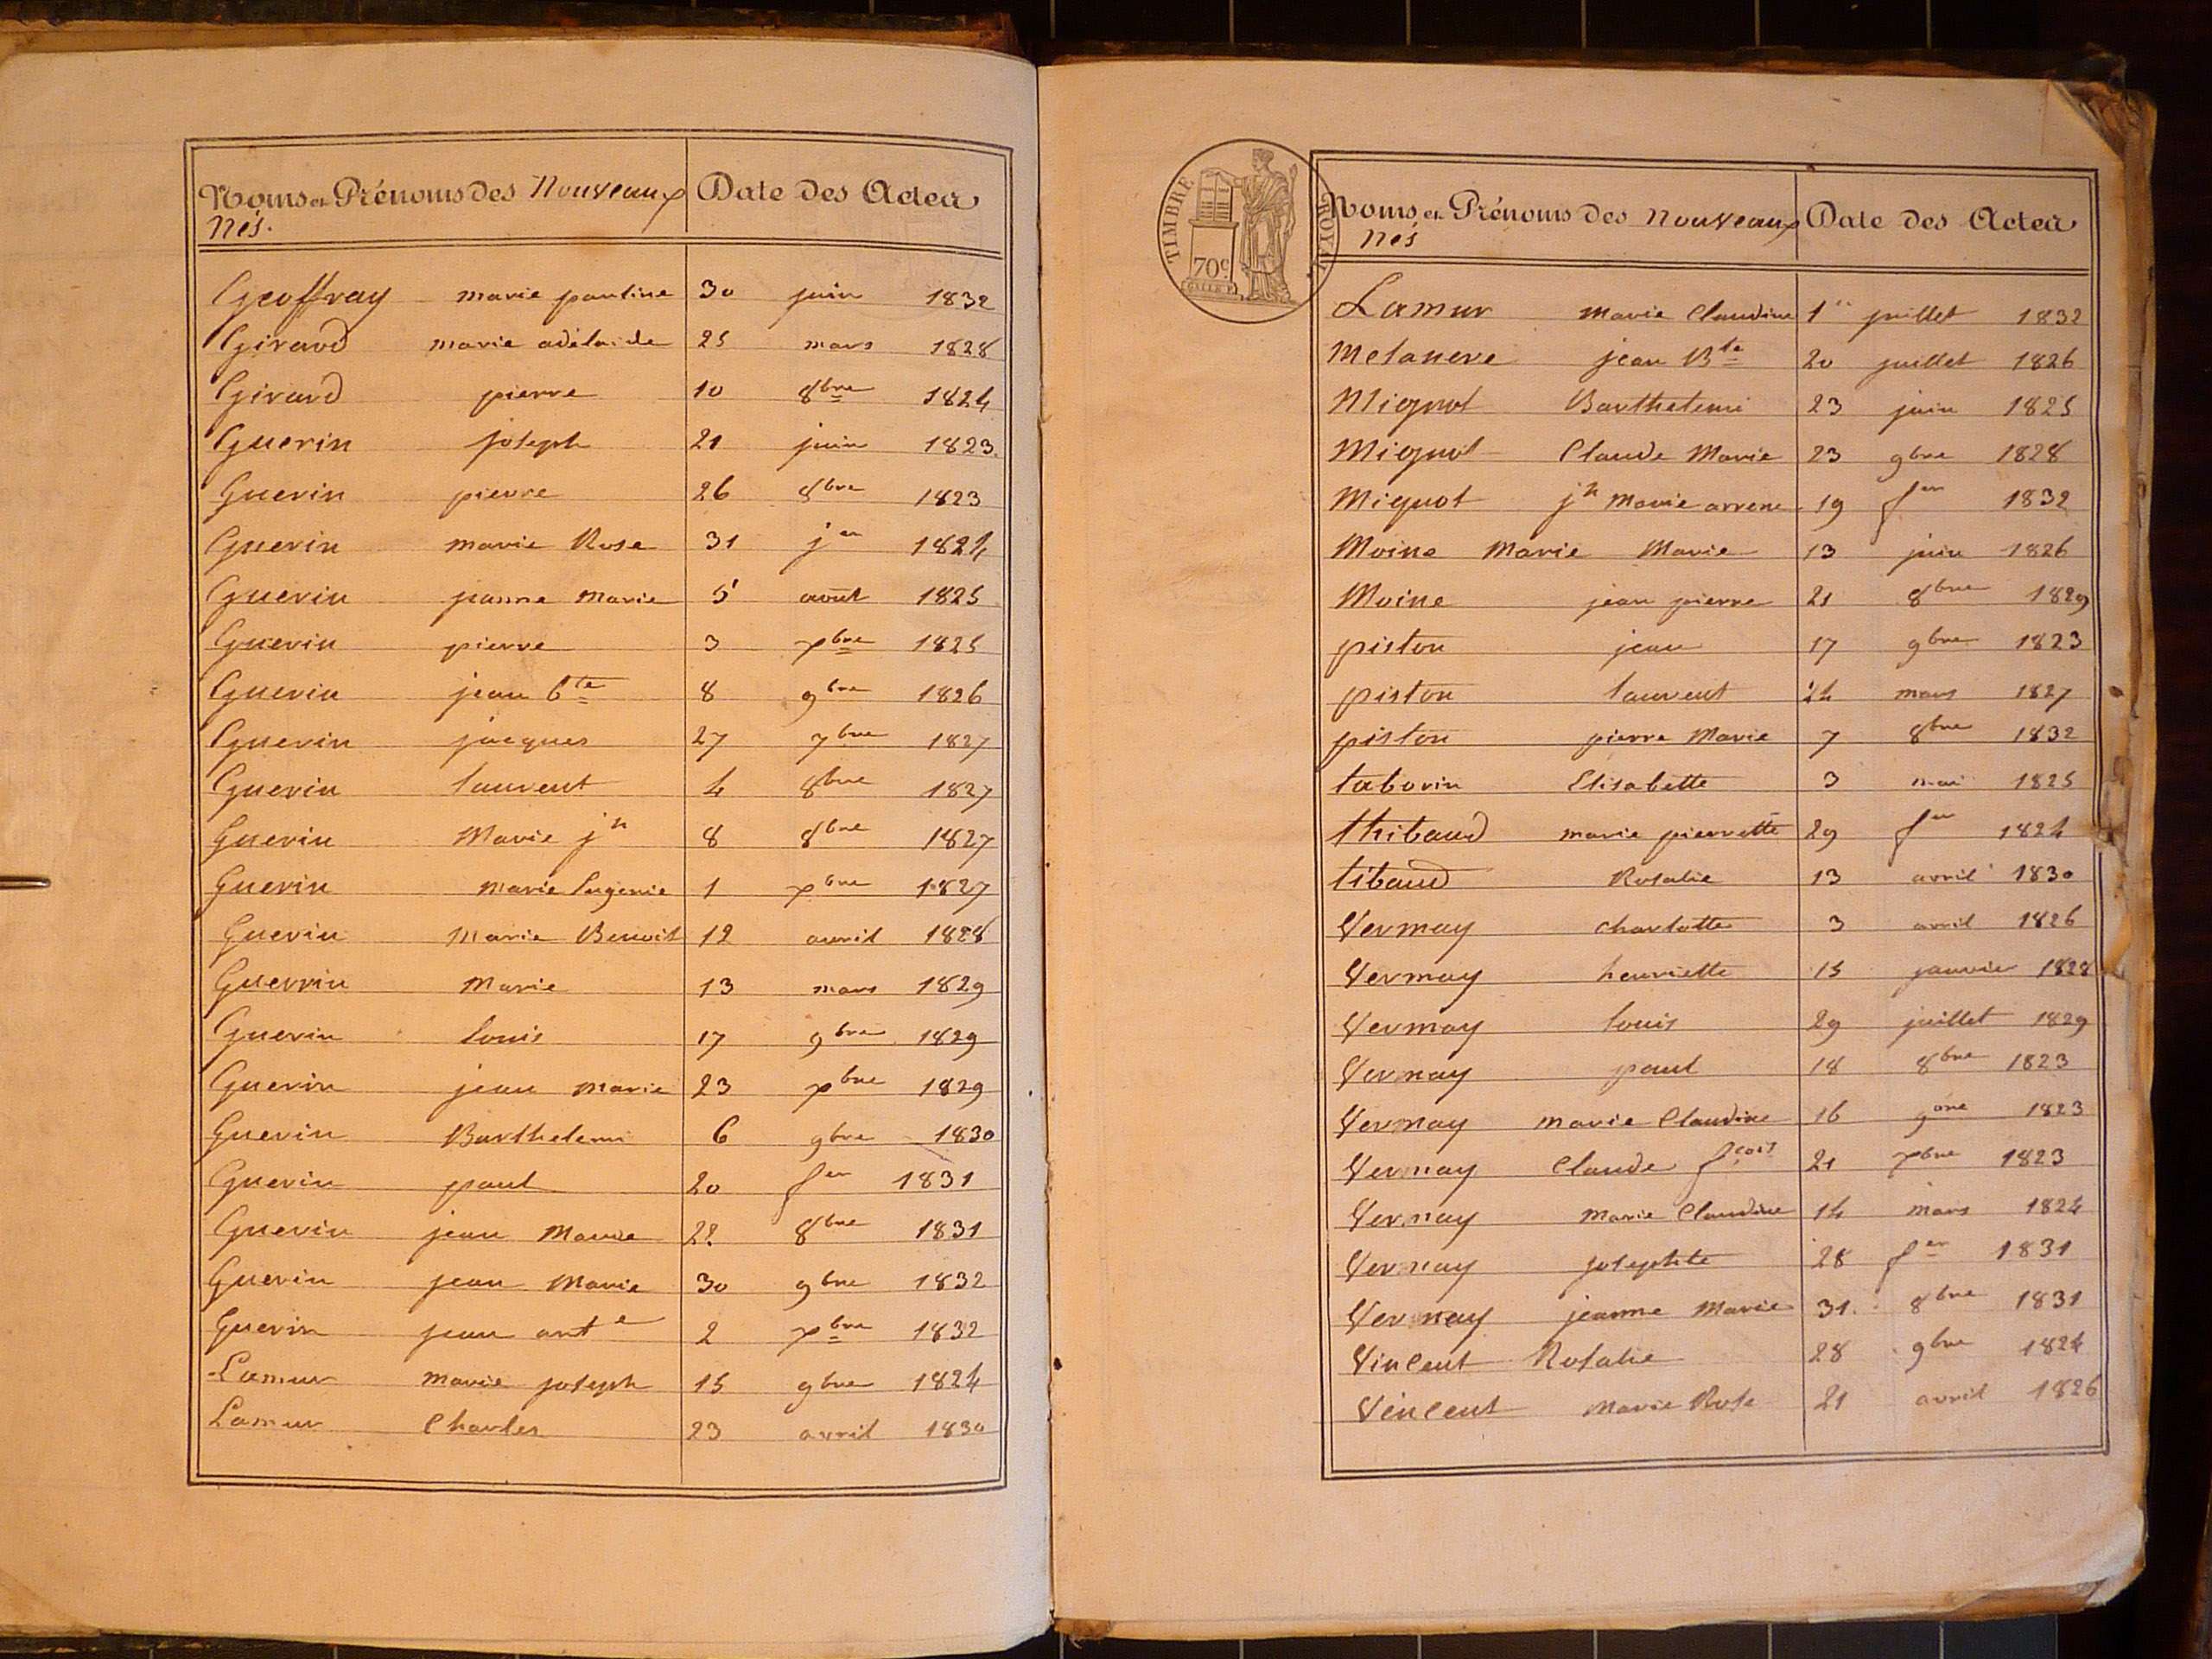 Noms et Prénoms des Nouveaux Date des Actes
Nés.
Geoffray marie pauline 30 juin 1832
Girard marie adélaide 25 mars 1828
Girard pierre 10 8bre 1824
Guerin joseph 21 juin 1823.
Guerin pierre 26 8bre 1823
Guerin marie Rose 31 jer 1824
Guerin jeanne Marie 5 août 1825
Guerin pierre 3 xbre 1825
Guerin jean bte 8 9bre 1826
Guerin jacques 27 7bre 1827
Guerin laurent 4 8bre 1827
Guerin Marie jh 8 8bre 1827
Guerin marie Eugenie 1 xbre 1827
Guerin Marie Benoit 12 avril 1828
Guerrin Marie 13 mars 1829
Guerin louis 17 9bre 1829
Guerin jean Marie 23 xbre 1829
Guerin Barthelemi 6 9bre 1830
Guerin paul 20 fer 1831
Guerin jean Marie 22 8bre 1831
Guerin jean Marie 30 9bre 1832
Guerin jean ante 2 xbre 1832
Lamur marie joseph 15 9bre 1824
Lamur Charles 23 avril 1830
TIMBRE ROYAL
70c
Noms et Prénoms des Nouveaux Date des Actes
Nés
Lamur Marie Claudine 1er juillet 1832
Melanere jean Bte 20 juillet 1826
Mignot Barthelemi 23 juin 1825
Mignot Claude Marie 23 9bre 1828
Mignot jh Marie 19 fer 1832
Moine Marie Marie 13 juin 1826
Moine jean pierre 21 8bre 1829
piston jean 17 9bre 1823
piston laurent 24 mars 1827
piston pierre Marie 7 8bre 1832
taborin Elisabette 3 mai 1825
thibaud marie pierrette 29 fer 1824
tibaud Rosalie 13 avril 1830
Vermay charlotte 3 avril 1826
Vermay henriette 15 janvier 1828
Vermay louis 29 juillet 1829
Vernay paul 18 8bre 1823
Vernay marie Claudine 16 9bre 1823
Vernay Claude fcois 21 xbre 1823
Vernay Marie Claudine 14 mars 1824
Vernay josephte 28 fer 1831
Vernay jeanne Marie 31 8bre 1831
Vincent Rosalie 28 9bre 1824
Vincent Marie Rose 21 avril 1826